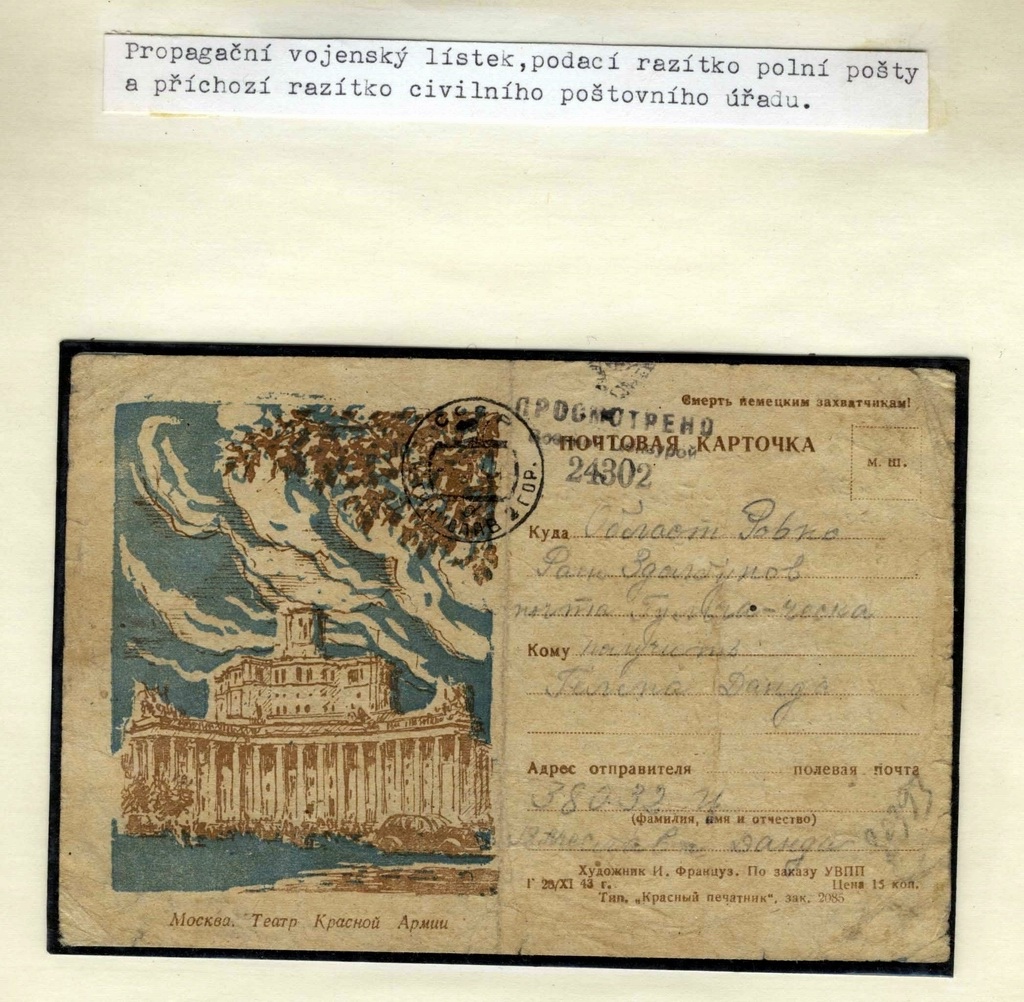 Propagační vojenský lístek,podací razítko polní pošty
a příchozí razítko civilního poštovního úřadu.
Смерть немецким захватчикам!
ПРОСМОТРЕНО
ПОЧТОВАЯ КАРТОЧКА
24302
М. Ш.
СССР
2 ГОР.
Куда Област Ровно
Здолбунов
почта
Кому получить
Данда
Адрес отправителя полевая почта
38032
(фамилия, имя и отчество)
Данда
Художник И. Француз. По заказу УВПП
Г 28/XI 43 г. Цена 15 коп.
Тип. „Красный печатник“, зак. 2085
Москва. Театр Красной Армии